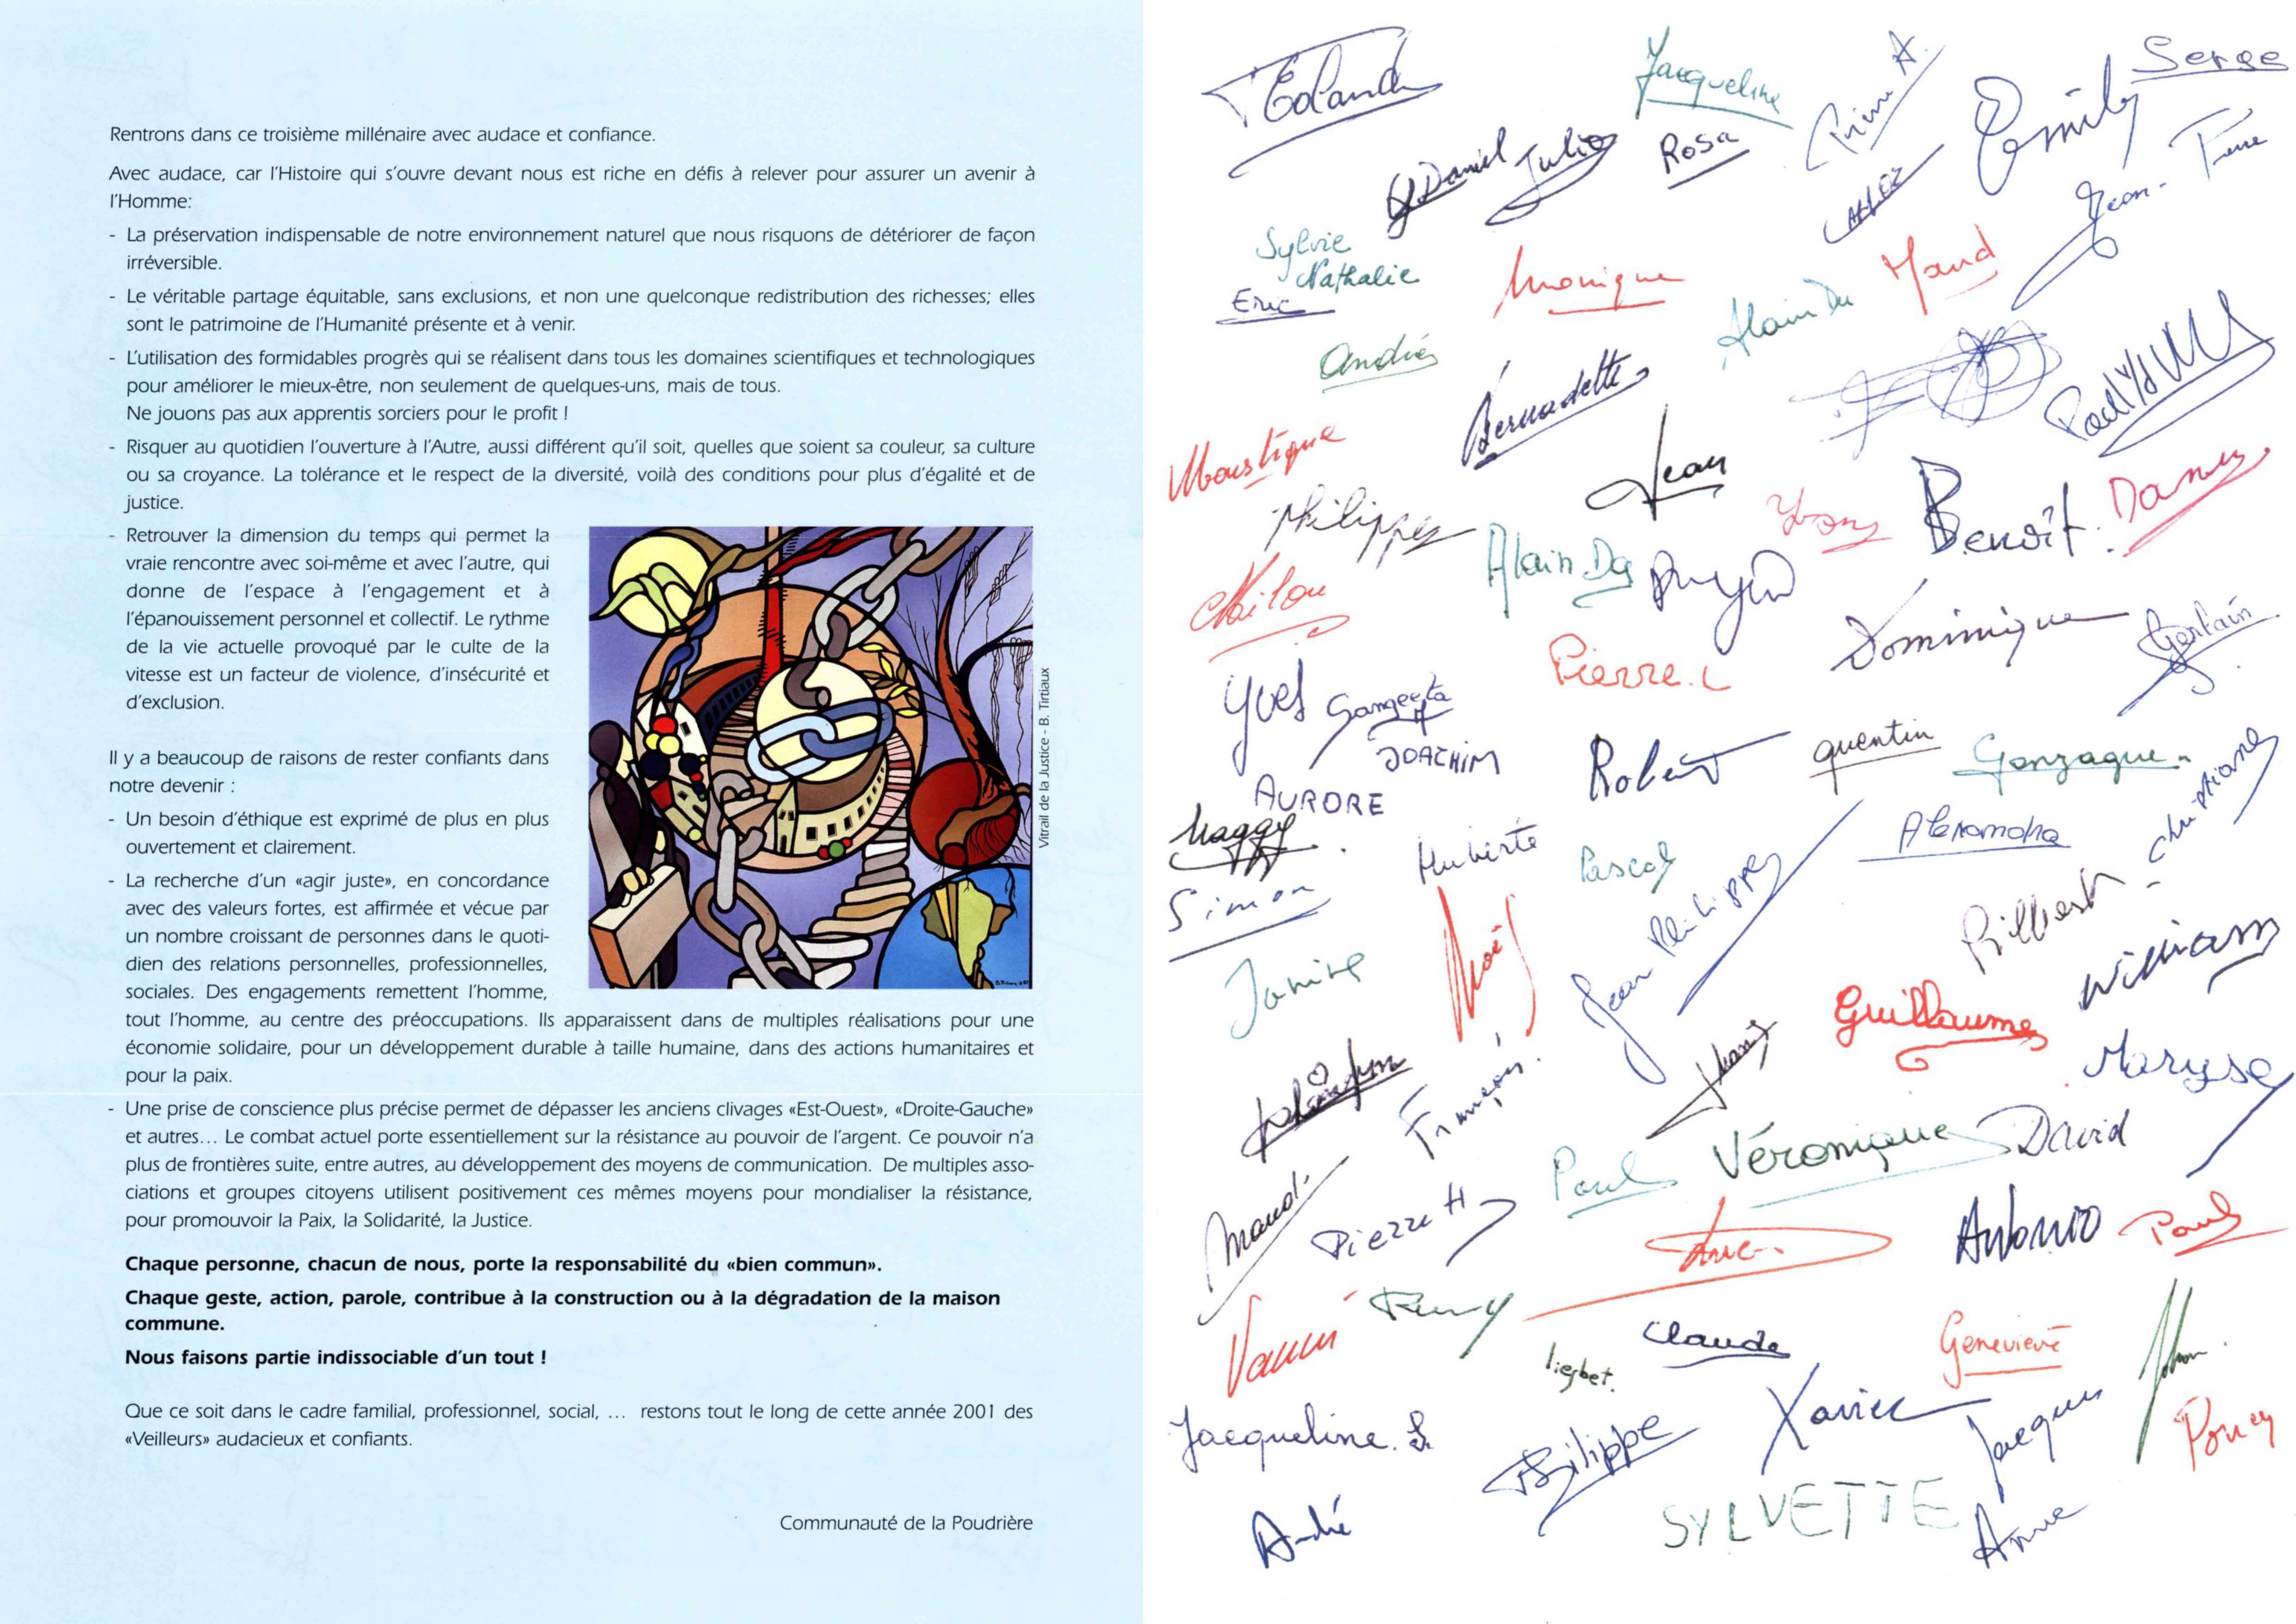 Rentrons dans ce troisième millénaire avec audace et confiance.
Avec audace, car l'Histoire qui s'ouvre devant nous est riche en défis à relever pour assurer un avenir à
l'Homme:
- La préservation indispensable de notre environnement naturel que nous risquons de détériorer de façon
irréversible.
- Le véritable partage équitable, sans exclusions, et non une quelconque redistribution des richesses; elles
sont le patrimoine de l'Humanité présente et à venir.
- L'utilisation des formidables progrès qui se réalisent dans tous les domaines scientifiques et technologiques
pour améliorer le mieux-être, non seulement de quelques-uns, mais de tous.
Ne jouons pas aux apprentis sorciers pour le profit !
- Risquer au quotidien l'ouverture à l'Autre, aussi différent qu'il soit, quelles que soient sa couleur, sa culture
ou sa croyance. La tolérance et le respect de la diversité, voilà des conditions pour plus d'égalité et de
justice.
- Retrouver la dimension du temps qui permet la
vraie rencontre avec soi-même et avec l'autre, qui
donne de l'espace à l'engagement et à
l'épanouissement personnel et collectif. Le rythme
de la vie actuelle provoqué par le culte de la
vitesse est un facteur de violence, d'insécurité et
d'exclusion.
Il y a beaucoup de raisons de rester confiants dans
notre devenir :
- Un besoin d'éthique est exprimé de plus en plus
ouvertement et clairement.
- La recherche d'un «agir juste», en concordance
avec des valeurs fortes, est affirmée et vécue par
un nombre croissant de personnes dans le quoti-
dien des relations personnelles, professionnelles,
sociales. Des engagements remettent l'homme,
tout l'homme, au centre des préoccupations. Ils apparaissent dans de multiples réalisations pour une
économie solidaire, pour un développement durable à taille humaine, dans des actions humanitaires et
pour la paix.
- Une prise de conscience plus précise permet de dépasser les anciens clivages «Est-Ouest», «Droite-Gauche»
et autres... Le combat actuel porte essentiellement sur la résistance au pouvoir de l'argent. Ce pouvoir n'a
plus de frontières suite, entre autres, au développement des moyens de communication. De multiples asso-
ciations et groupes citoyens utilisent positivement ces mêmes moyens pour mondialiser la résistance,
pour promouvoir la Paix, la Solidarité, la Justice.
Chaque personne, chacun de nous, porte la responsabilité du «bien commun».
Chaque geste, action, parole, contribue à la construction ou à la dégradation de la maison
commune.
Nous faisons partie indissociable d'un tout !
Que ce soit dans le cadre familial, professionnel, social, ... restons tout le long de cette année 2001 des
«Veilleurs» audacieux et confiants.
Communauté de la Poudrière
Vitrail de la Justice - B. Tirtiaux
Jacqueline
Serge
Emily
Daniel
Julio
Rosa
Sylvie
Nathalie
Eric
Monique
Alain Du
Maud
Bernadette
Moustique
Jean
Philippe
Alain Dg
Benoît
Dany
Pierre. L
Dominique
Yves
Sangeeta
JOACHIM
Robert
quentin
Gonzague
Christiane
AURORE
Maggy
Huberte
Pascal
Alexandra
Simon
Jean Philippe
Noël
William
Janine
Guillaume
François
Maryse
Paul
Véronique
David
Pierre H
Antonio
Paul
Claude
Geneviève
liesbet.
Jacqueline. S.
Philippe
Xavier
Jacques
André
SYLVETTE
Anne